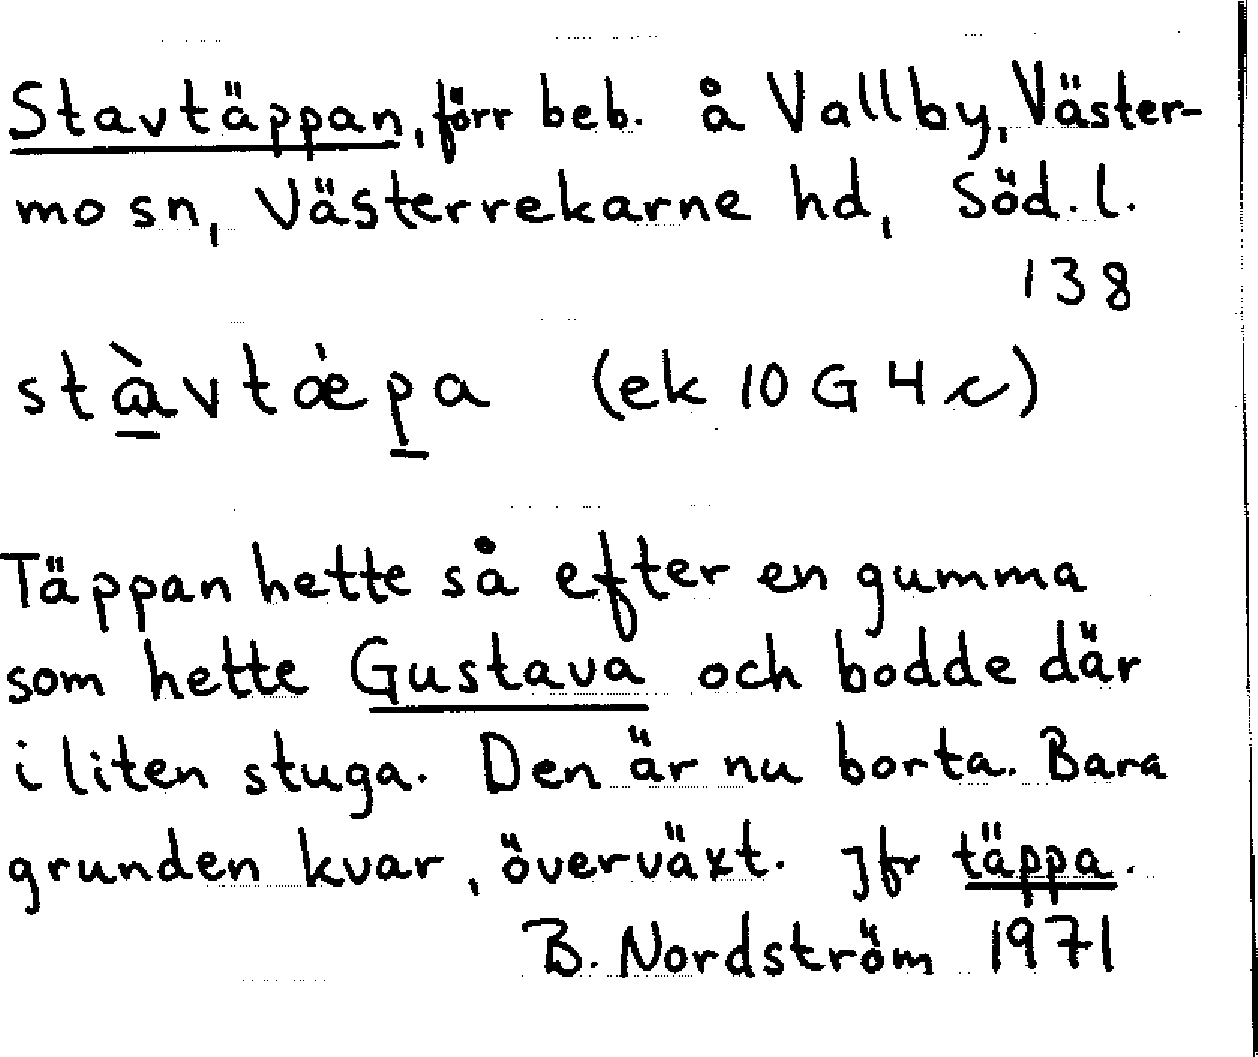 Stavtäppan, förr beb. å Vallby, Väster-
mo sn, Västerrekarne hd, Söd. l.
138
stàvtæ̇pa (ek 10 G 4 c)
Täppan hette så efter en gumma
som hette Gustava och bodde där
i liten stuga. Den är nu borta. Bara
grunden kvar, överväxt. Jfr täppa.
B. Nordström 1971